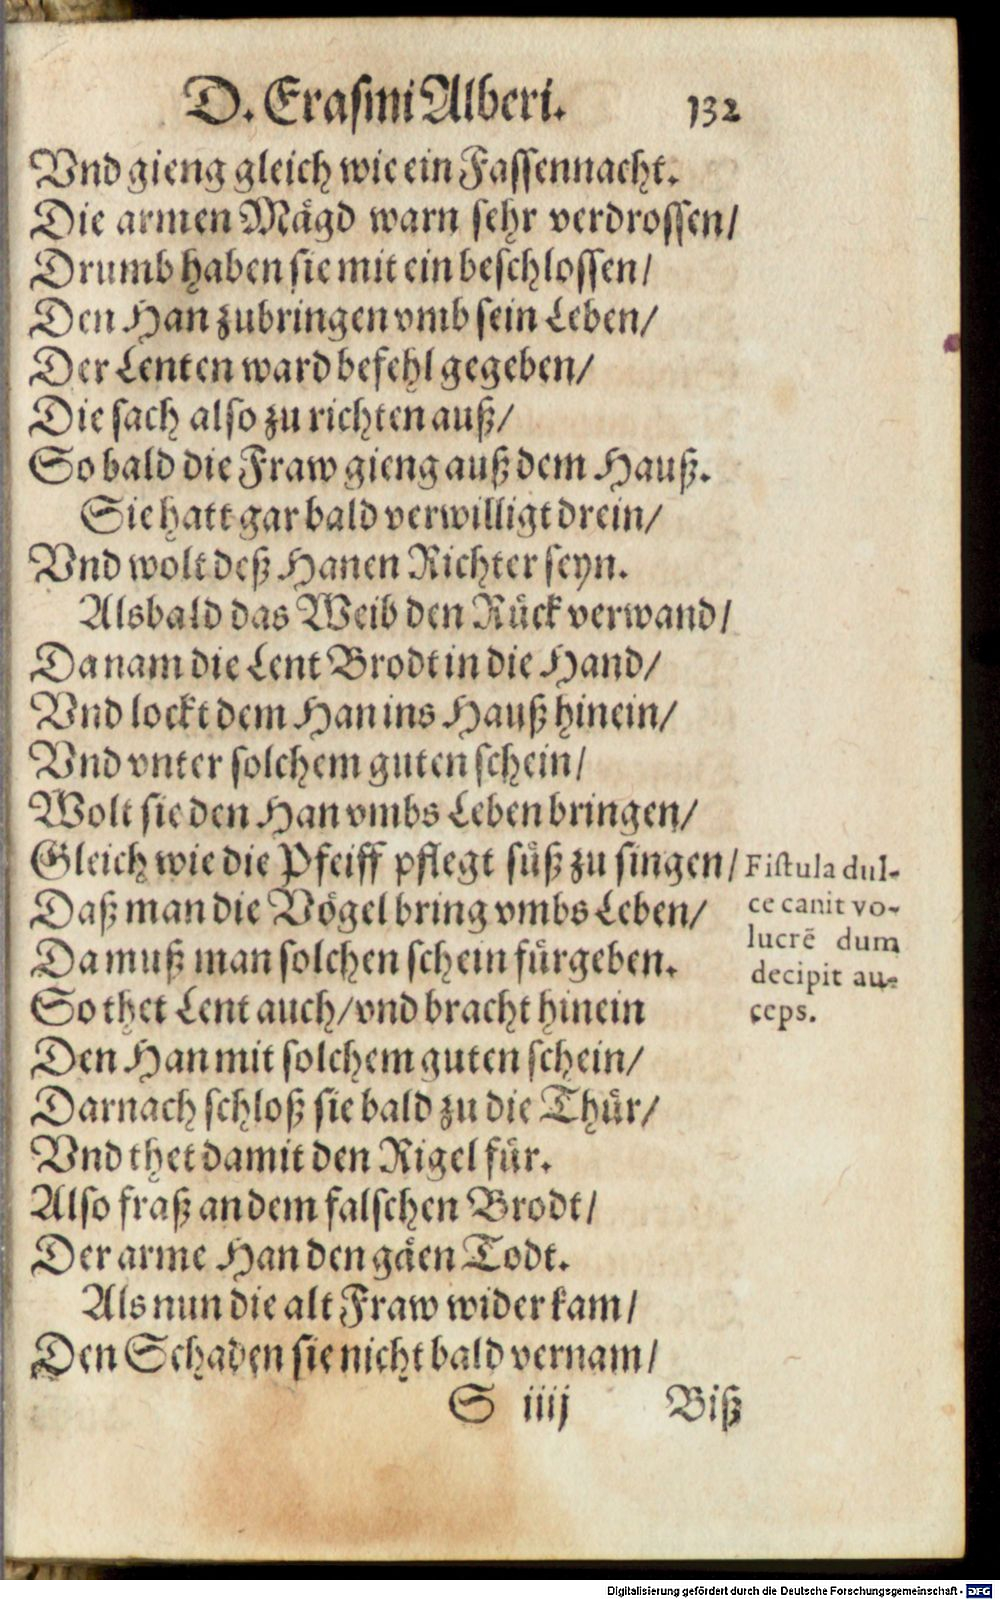 D. Erasmi Alberi. 132
Vnd gieng gleich wie ein Fassennacht.
Die armen Mägd warn sehr verdrossen/
Drumb haben sie mit ein beschlossen/
Den Han zubringen vmb sein Leben/
Der Lenten ward befehl gegeben/
Die sach also zu richten auß/
So bald die Fraw gieng auß dem Hauß.
Sie hatt gar bald verwilligt drein/
Vnd wolt deß Hanen Richter seyn.
Alsbald das Weib den Rück verwand/
Da nam die Lent Brodt in die Hand/
Vnd lockt dem Han ins Hauß hinein/
Vnd vnter solchem guten schein/
Wolt sie den Han vmbs Leben bringen/
Gleich wie die Pfeiff pflegt süß zu singen/
Daß man die Vögel bring vmbs Leben/
Da muß man solchen schein fürgeben.
So thet Lent auch/vnd bracht hinein
Den Han mit solchem guten schein/
Darnach schloß sie bald zu die Thür/
Vnd thet damit den Rigel für.
Also fraß an dem falschen Brodt/
Der arme Han den gäen Todt.
Als nun die alt Fraw wider kam/
Den Schaden sie nicht bald vernam/
S iiij Biß
Fistula dul-
ce canit vo-
lucrẽ dum
decipit au-
ceps.
Digitalisierung gefördert durch die Deutsche Forschungsgemeinschaft - DFG